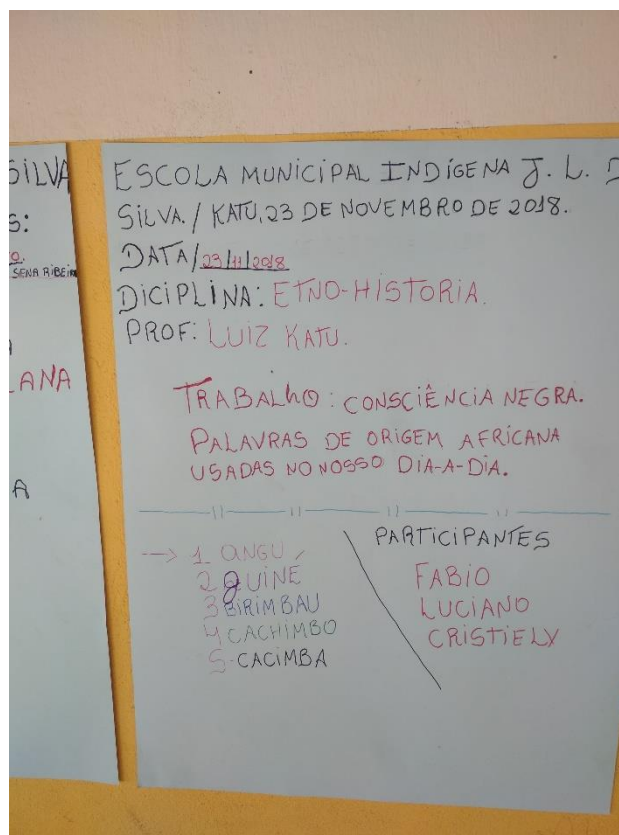 SILVA
S:
O.
SENA RIBEIR
LANA
A
ESCOLA MUNICIPAL INDÍGENA J. L. D
SILVA. / KATU, 23 DE NOVEMBRO DE 2018.
DATA/23/11/2018
DICIPLINA: ETNO-HISTORIA.
PROF: LUIZ KATU.
TRABALhO: CONSCIÊNCIA NEGRA.
PALAVRAS DE ORIGEM AFRICANA
USADAS NO NOSSO DIA-A-DIA.
PARTICIPANTES
→ 1 ANGU
2 QUINE
3 BIRIMBAU
4 CACHIMBO
5-CACIMBA
FABIO
LUCIANO
CRISTIELY